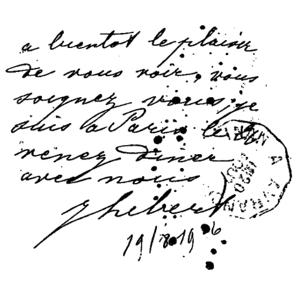 a bientot le plaisir
de vous voir, vous
soignez vous je
suis a Paris le
venez diner
avec nous
Jhebert
19/8 19 6